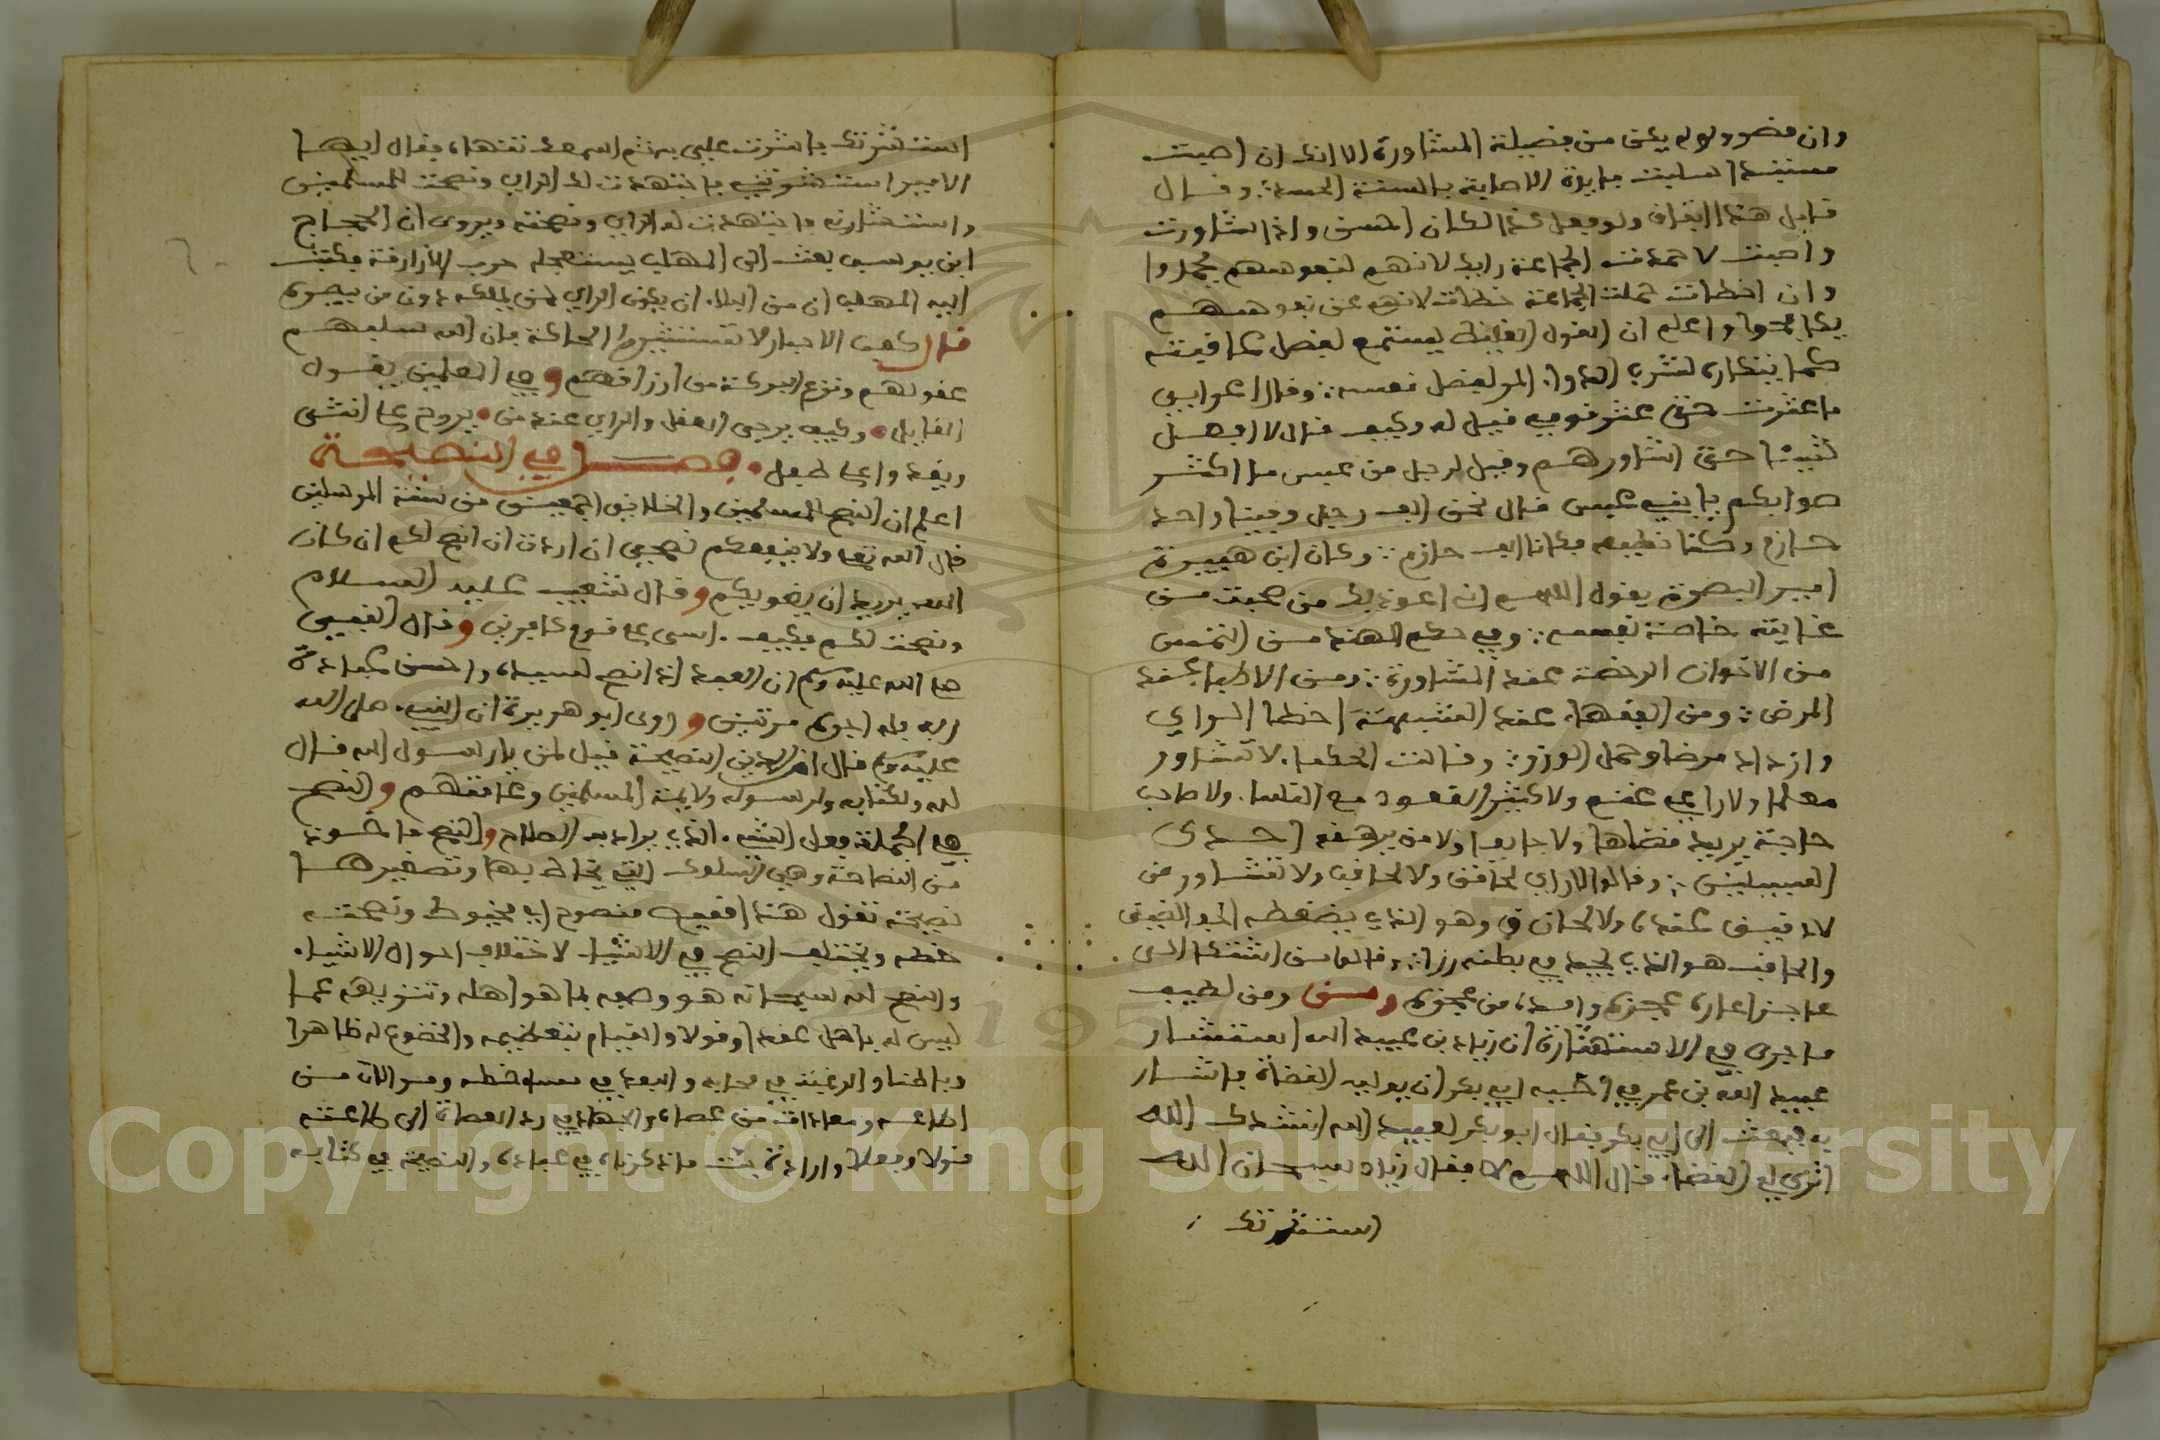 وان مضور ولو لم يكن من فضيلة المشاورة الا انك ان اصبت
مستبدا سلبت فايدة الاصابة بالسنة الحسدة وقال
قايل هذا اتفاق ولو فعل كذا لكان احسن واذا شاورت
واصبت حمدت الجماعة رايك لانهم لنفوسهم يحمدوا
وان اخطات حملت الجماعة خطاك لانهم عن نفوسهم
يكافحوا واعلم ان القول الغليظ يستمع لفضل عاقبته
كما يتكاره لشرب الدواء المر لفضل نفعه وقال اعرابي
ما عثرت حتى عثر قومي قيل له وكيف قال لا افعل
شيئا حتى اشاورهم وقيل لرجل من عبس ما اكثر
صوابكم يا بني عبس قال نحن الف رجل وفينا واحد
حازم وكنا نطيعه فكانا الف حازم وكان ابن هبيرة
امير البصرة يقول اللهم اني اعوذ بك من صحبة من
غايته خاصة نفسه وفي حكم الهند من التمس
من الاخوان الرخصة عند المشاورة ومن الاطباء عند
المرض ومن الفقهاء عند الشبهة اخطا الراي
وازداد مرضا وحمل الوزر وقالت الحكماء لا تشاور
معلما ولا راعي غنم ولا كثير القعود مع النساء ولا صاحب
حاجة يريد قضاها ولا جايعا ولا من يرهقه احدى
السبيلين وقالوا لا راي لحاقن ولا لحاقب ولا تشاور من
لا دقيق عنده ولا لحازق وهو الذي يضغطه الخف الضيق
والحاقب هو الذي يجد في بطنه رزا وقالوا من اشتكا الى
عاجز اعاره عجزه وامده من عجزه ومن لطيف
ما جرى في الاستشارة ان زياد بن عبيد الله استشار
عبيد الله بن عمر في اخيه ابي بكر ان يوليه القضاة فاشار
به فبعث الى ابي بكر فقال ابو بكر لعبيد الله انشدك الله
اترى لي القضاء قال اللهم لا فقال زياد سبحان الله
استشرتك
استشرتك فاشرت علي به ثم اسمعك تنهاه فقال ايها
الامير استشرتني فاجتهدت لك الراي ونصحت للمسلمين
واستشارني فاجتهدت له الراي ونصحته ويروى ان الحجاج
ابن يوسف بعث الى المهلب يستعجله حرب الازارقة فكتب
اليه المهلب ان من البلاء ان يكون الراي لمن يملكه دون من يبصره
قال كعب الاحبار لا تستشيروا الحاكة فان الله سلبهم
عقولهم ونزع البركة من ارزاقهم وفي المعلمين يقول
القايل وكيف يرجى العقل والراي عند من يروح على انثى
ويغدوا على طفل فصل في النصيحة
اعلم ان النصح للمسلمين والخلايق اجمعين من سنة المرسلين
قال الله تعا ولا ينفعكم نصحي ان اردت ان انصح لكم ان كان
الله يريد ان يغويكم وقال شعيب عليه السلام
ونصحت لكم فكيف ءاسى على قوم كافرين وقال النبي
صلى الله عليه وسلم ان العبد اذا نصح لسيده واحسن عبادة
ربه فله اجره مرتين وروى ابو هريرة ان النبي صلى الله
عليه وسلم قال ان الدين النصيحة قيل لمن يا رسول الله قال
لله ولكتابه ولرسوله ولايمة المسلمين وعامتهم والنصح
في الجملة فعل الشيء الذي يراد به الصلاح والنصح ماخوذ
من النصاحة وهي السلوك التي يخاط بها وتصغيرها
نصيحة تقول هذا قميص منصوح اي مخيوط ونصحته
خطه ويختلف النصح في الاشياء لاختلاف احوال الاشياء
والنصح لله سبحانه هو وصفه بما هو اهله وتنزيهه عما
ليس له باهل عقدا وقولا والقيام بتعظيمه والخضوع له ظاهرا
وباطنا والرغبة في محابه والبعد في مساخطه وموالاة من
اطاعه ومعاداة من عصاه والجهاد في رد العصاة الى طاعته
قولا وفعلا وارادة بث ما ذكرناه في عباده والنصيحة في كتابه
Copyright © King Saud University
1957